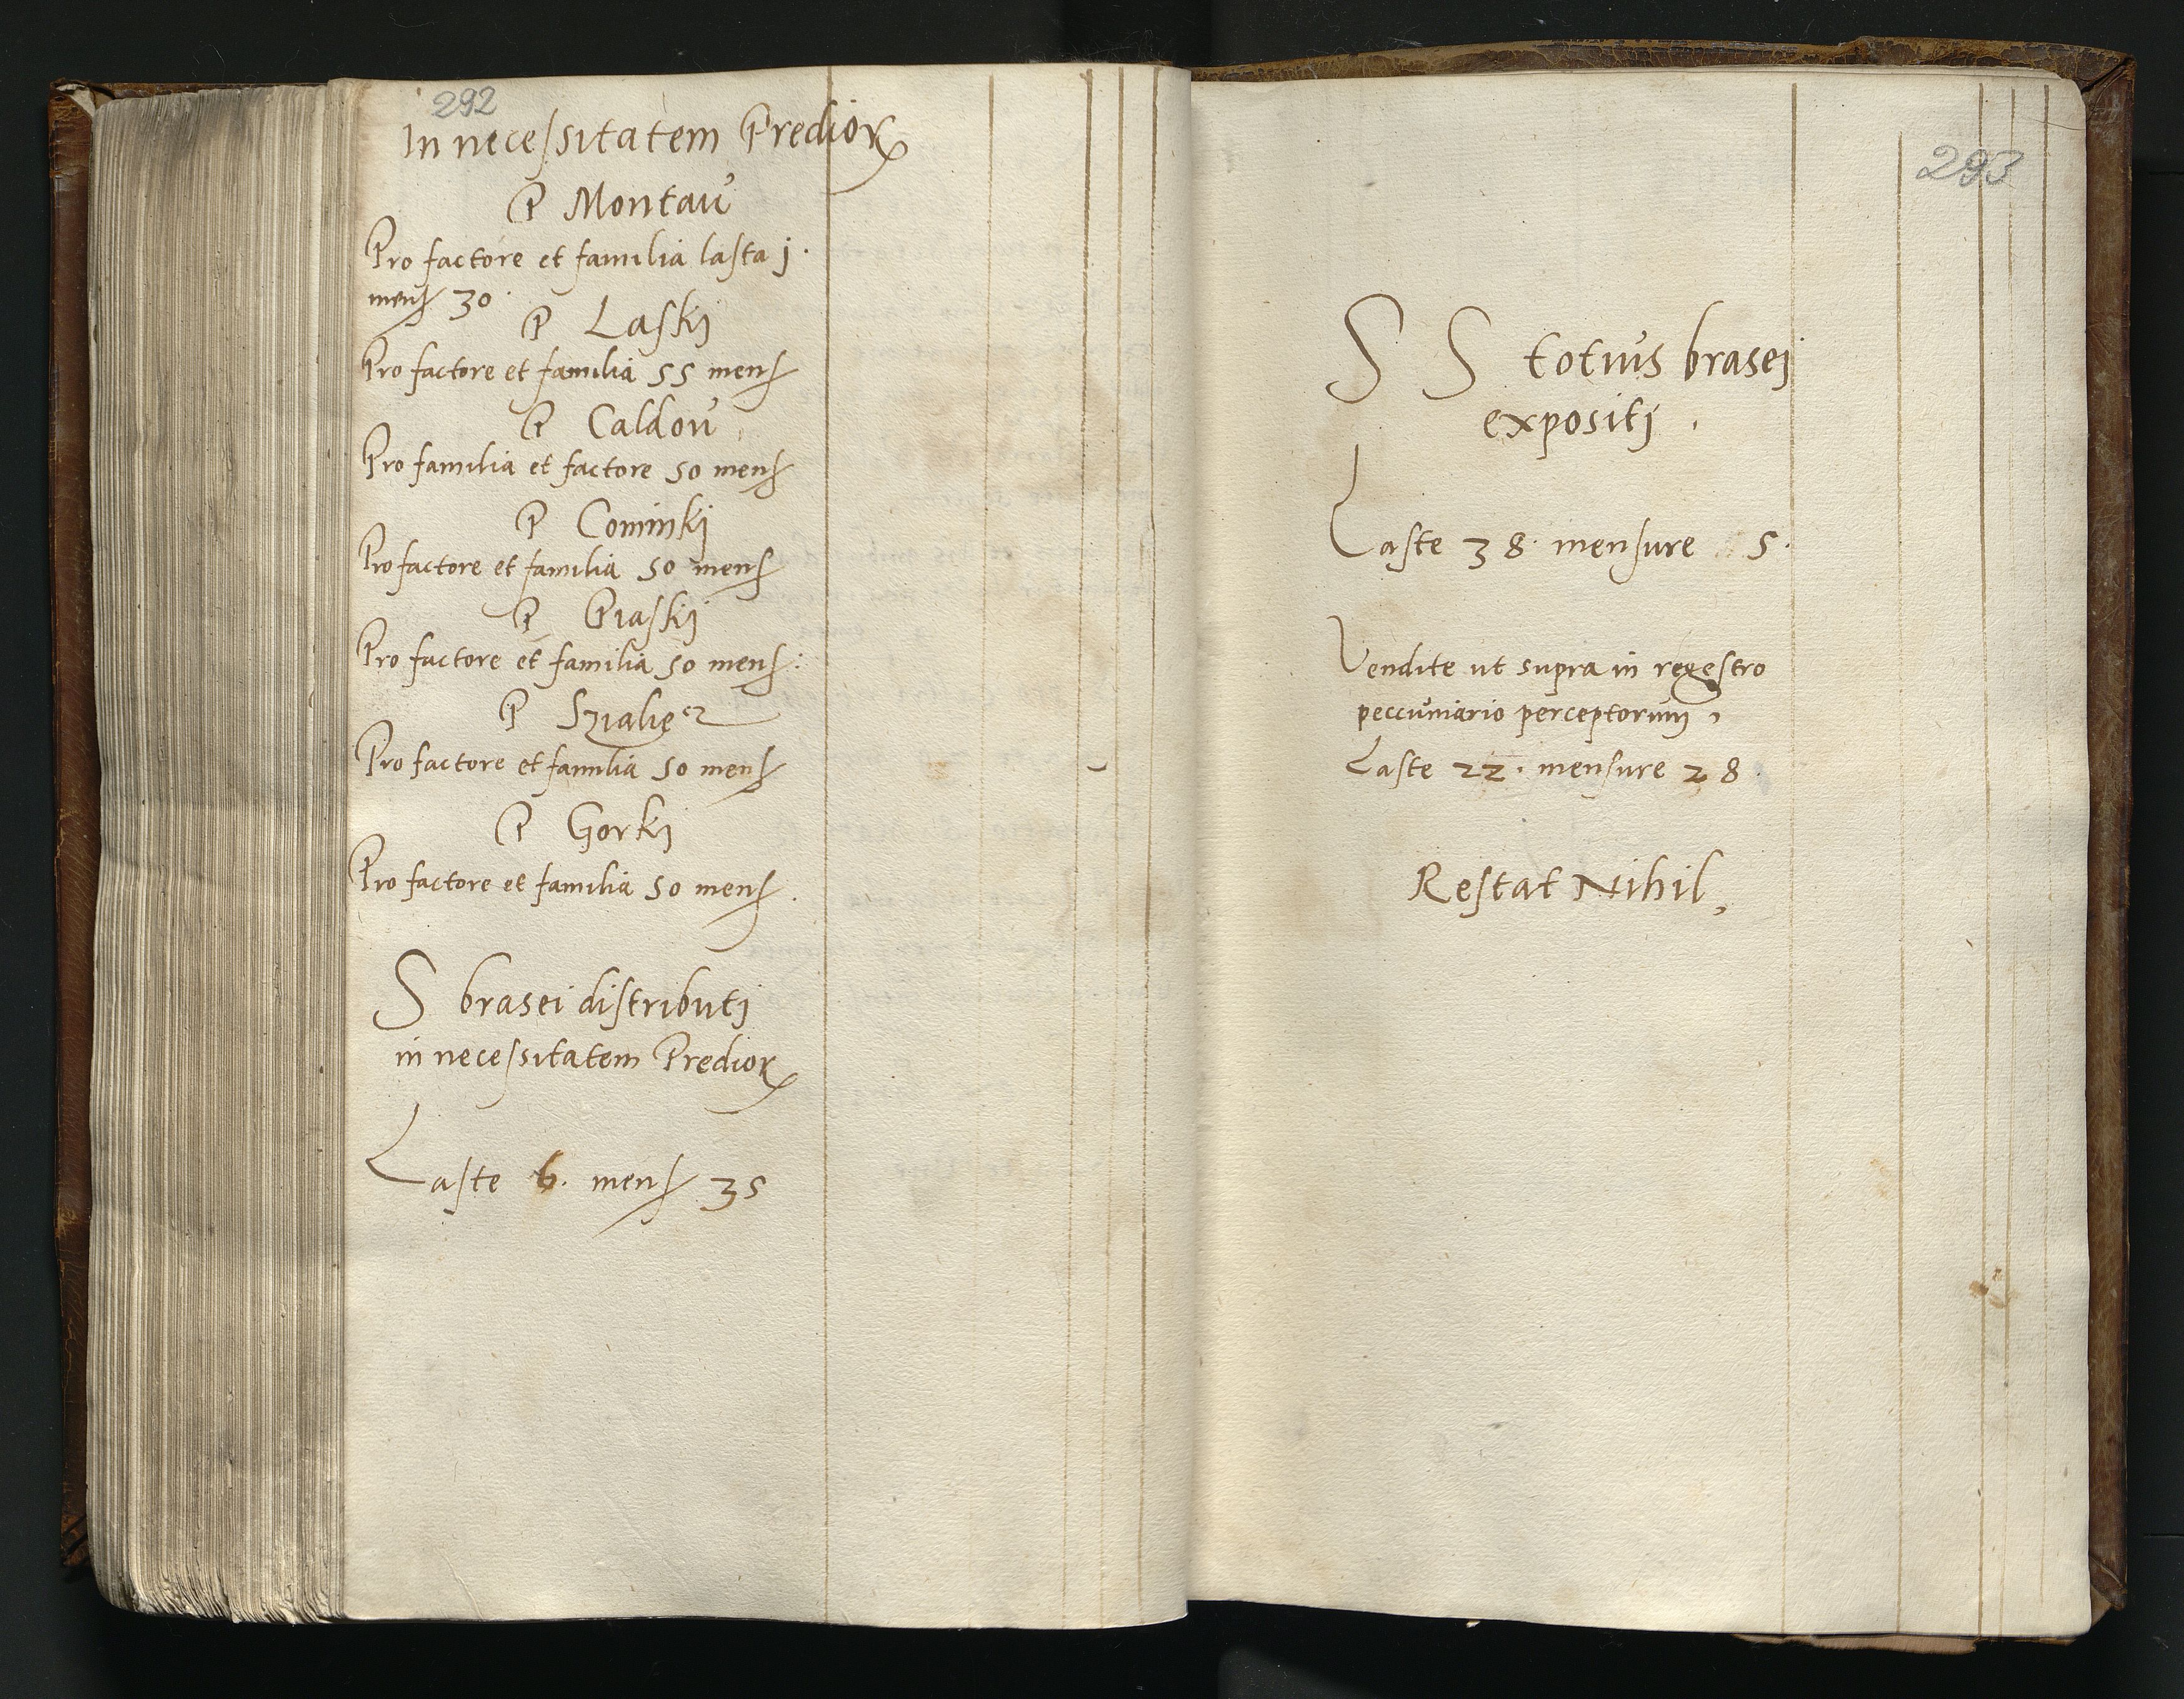 292
In necessitatem Predior
P Montau
Pro factore et familia lasta j.
mens 30.
P Laskj
Pro factore et familia 55 mens
P Caldou
Pro familia et factore 50 mens
P Cominkj
Pro factore et familia 50 mens
P Piaskj
Pro factore et familia 50 mens:
P
Pro factore et familia 50 mens
P Gorkj
Pro factore et familia 50 mens.
S brasei distributj
in necessitatem Predior
Laste 6. mens 35
293
S S totius brasej
expositj.
Laste 38. mensure 5.
Vendite ut supra in regestro
peccuniario perceptorum,
Laste 22. mensure 28.
Restat Nihil,